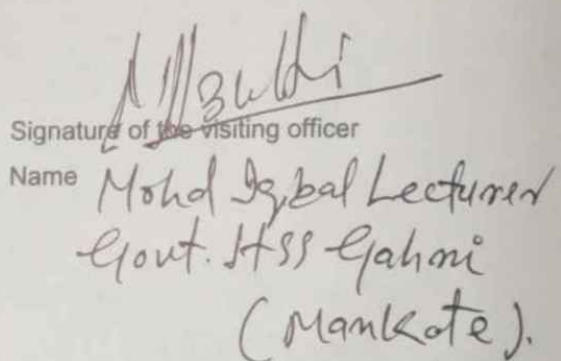 Signature of the visiting officer
Name Mohd Iqbal Lecturer
Govt. HSS Gahni
(Mankote).